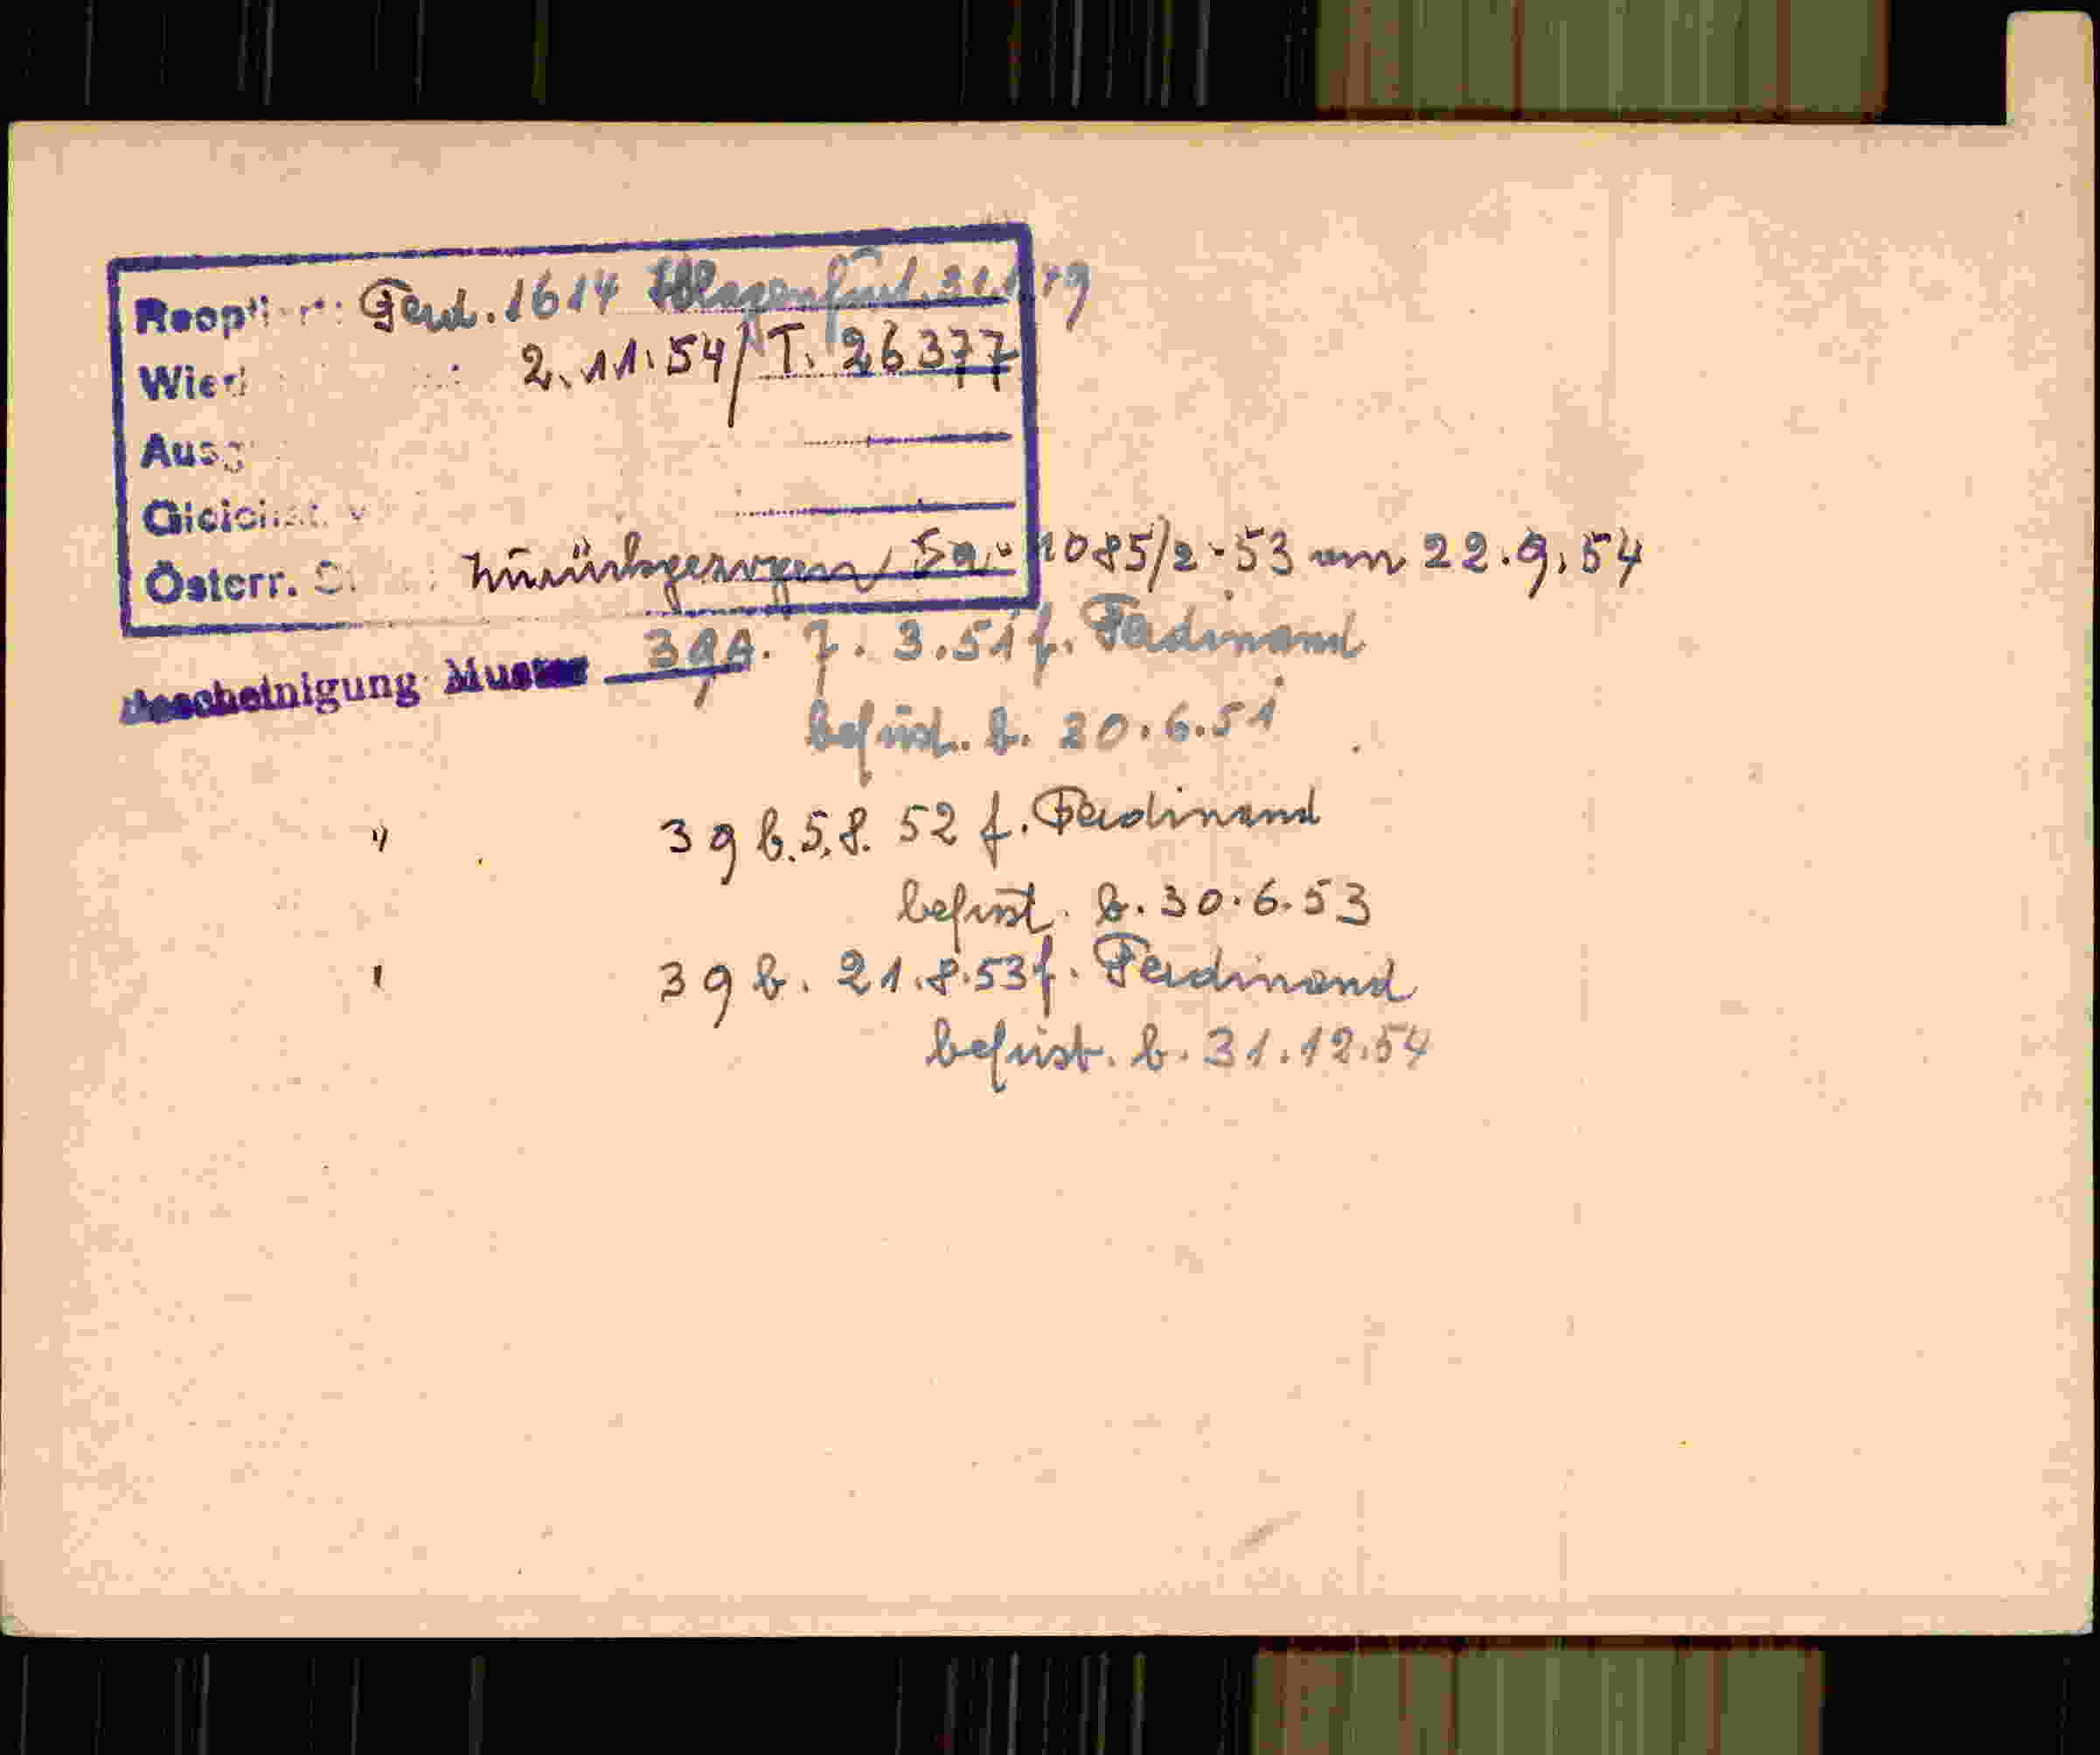 Reopt Ferd. 1614 Klagenfurt.
Wied 2.11.54/T. 26377
Ausg
Gleichst. v
Österr. S. zurückgezogen Sa. 1085/2-53 am 22.9.54
Bescheinigung Muster 39A. 7. 3.51 f. Ferdinand
befrist. b. 20.6.51
" 39 b. 5.8. 52 f. Ferdinand
befrist. b. 30.6.53
' 39 b. 21.8.53 f. Ferdinand
befrist. b. 31.12.54